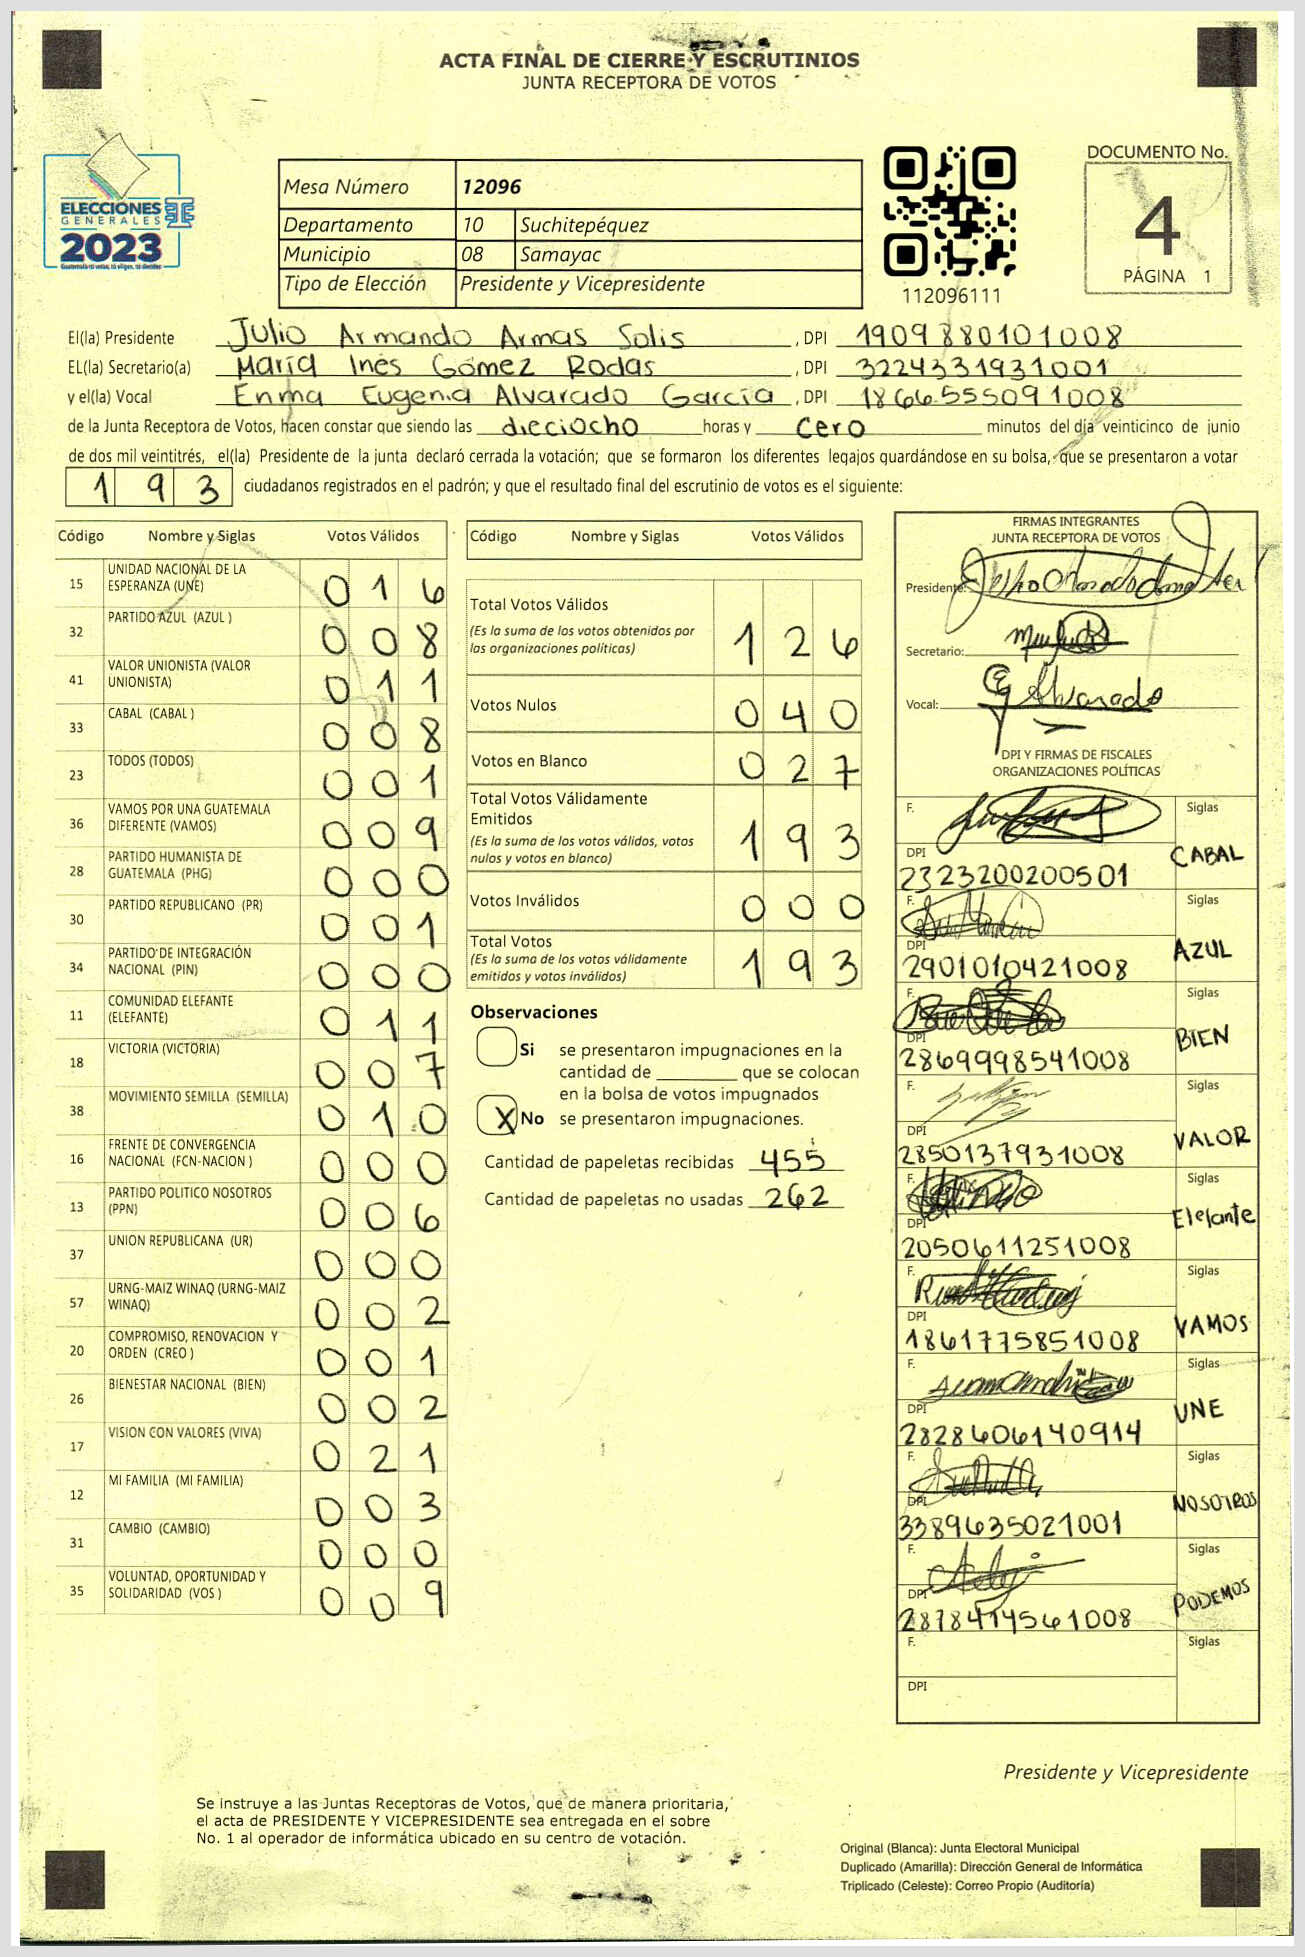 ACTA FINAL DE CIERRE Y ESCRUTINIOS
JUNTA RECEPTORA DE VOTOS
ELECCIONES
GENERALES
2023
Guatemala tú votas, tú eliges, tú decides
Mesa Número 12096
Departamento 10 Suchitepéquez
Municipio 08 Samayac
Tipo de Elección Presidente y Vicepresidente
112096111
DOCUMENTO No.
4
PÁGINA 1
El(la) Presidente Julio Armando Armas Solis , DPI 1909880101008
EL(la) Secretario(a) María Inés Gómez Rodas , DPI 3224331931001
y el(la) Vocal Enma Eugenia Alvarado García , DPI 1866555091008
de la Junta Receptora de Votos, hacen constar que siendo las dieciocho horas y cero minutos del día veinticinco de junio
de dos mil veintitrés, el(la) Presidente de la junta declaró cerrada la votación; que se formaron los diferentes legajos guardándose en su bolsa, que se presentaron a votar
193 ciudadanos registrados en el padrón; y que el resultado final del escrutinio de votos es el siguiente:
Código Nombre y Siglas Votos Válidos
15 UNIDAD NACIONAL DE LA ESPERANZA (UNE) 016
32 PARTIDO AZUL (AZUL ) 008
41 VALOR UNIONISTA (VALOR UNIONISTA) 011
33 CABAL (CABAL ) 008
23 TODOS (TODOS) 001
36 VAMOS POR UNA GUATEMALA DIFERENTE (VAMOS) 009
28 PARTIDO HUMANISTA DE GUATEMALA (PHG) 000
30 PARTIDO REPUBLICANO (PR) 001
34 PARTIDO DE INTEGRACIÓN NACIONAL (PIN) 000
11 COMUNIDAD ELEFANTE (ELEFANTE) 011
18 VICTORIA (VICTORIA) 007
38 MOVIMIENTO SEMILLA (SEMILLA) 010
16 FRENTE DE CONVERGENCIA NACIONAL (FCN-NACION ) 000
13 PARTIDO POLITICO NOSOTROS (PPN) 006
37 UNION REPUBLICANA (UR) 000
57 URNG-MAIZ WINAQ (URNG-MAIZ WINAQ) 002
20 COMPROMISO, RENOVACION Y ORDEN (CREO ) 001
26 BIENESTAR NACIONAL (BIEN) 002
17 VISION CON VALORES (VIVA) 021
12 MI FAMILIA (MI FAMILIA) 003
31 CAMBIO (CAMBIO) 000
35 VOLUNTAD, OPORTUNIDAD Y SOLIDARIDAD (VOS ) 009
Código Nombre y Siglas Votos Válidos
Total Votos Válidos
(Es la suma de los votos obtenidos por
las organizaciones políticas) 126
Votos Nulos 040
Votos en Blanco 027
Total Votos Válidamente
Emitidos
(Es la suma de los votos válidos, votos
nulos y votos en blanco) 193
Votos Inválidos 000
Total Votos
(Es la suma de los votos válidamente
emitidos y votos inválidos) 193
Observaciones
Si se presentaron impugnaciones en la
cantidad de ________ que se colocan
en la bolsa de votos impugnados
X No se presentaron impugnaciones.
Cantidad de papeletas recibidas 455
Cantidad de papeletas no usadas 262
FIRMAS INTEGRANTES
JUNTA RECEPTORA DE VOTOS
Presidente:
Secretario:
Vocal: Alvarado
DPI Y FIRMAS DE FISCALES
ORGANIZACIONES POLÍTICAS
F. Siglas
DPI 2323200200501 CABAL
F. Siglas
DPI 2901010421008 AZUL
F. Siglas
DPI 2869998541008 BIEN
F. Siglas
DPI 2850137931008 VALOR
F. Siglas
DPI 2050611251008 Elefante
F. Siglas
DPI 1861775851008 VAMOS
F. Siglas
DPI 2828606140914 UNE
F. Siglas
DPI 3389635021001 NOSOTROS
F. Siglas
DPI 2878414561008 PODEMOS
F. Siglas
DPI
Presidente y Vicepresidente
Se instruye a las Juntas Receptoras de Votos, que de manera prioritaria,
el acta de PRESIDENTE Y VICEPRESIDENTE sea entregada en el sobre
No. 1 al operador de informática ubicado en su centro de votación.
Original (Blanca): Junta Electoral Municipal
Duplicado (Amarilla): Dirección General de Informática
Triplicado (Celeste): Correo Propio (Auditoría)